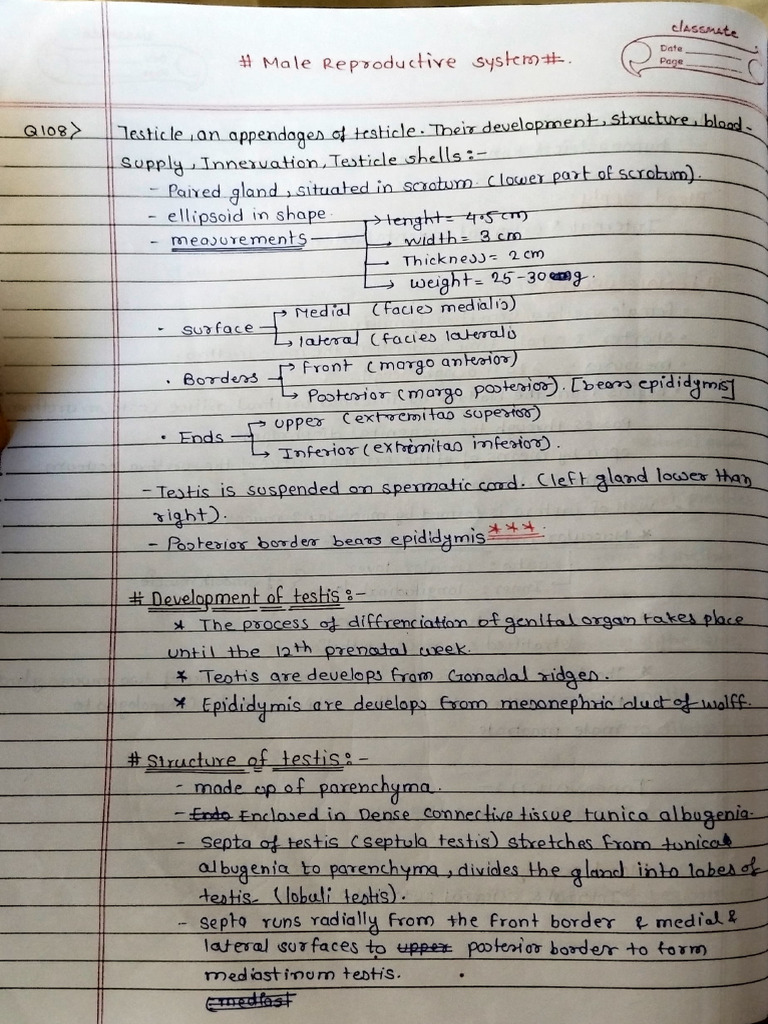 classmate
Date
Page
# Male Reproductive system #.
Q108> Testicle, an appendages of testicle. Their development, structure, blood-
supply, Innervation, Testicle shells:-
- Paired gland, situated in scrotum. (lower part of scrotum).
- ellipsoid in shape.
- measurements → lenght = 4.5 cm
→ width = 3 cm
→ Thickness = 2 cm
→ weight = 25-30 g.
• surface → Medial (facies medialis)
→ lateral (facies lateralis
• Borders → Front (margo anterior)
→ Posterior (margo posterior). [bears epididymis]
• Ends → upper (extremitas superior)
→ Inferior (extrimitas inferior).
- Testis is suspended on spermatic cord. (left gland lower than
right).
- Posterior border bears epididymis ***
# Development of testis:-
* The process of diffrenciation of genital organ takes place
until the 12th prenatal week.
* Testis are develops from Gonadal ridges.
* Epididymis are develops from mesonephric duct of wolff.
# Structure of testis:-
- made up of parenchyma.
- Endo Enclosed in Dense connective tissue tunica albugenia.
- septa of testis (septula testis) stretches from tunica
albugenia to parenchyma, divides the gland into lobes of
testis (lobuli testis).
- septa runs radially from the front border & medial &
lateral surfaces to upper posterior border to form
mediastinum testis.